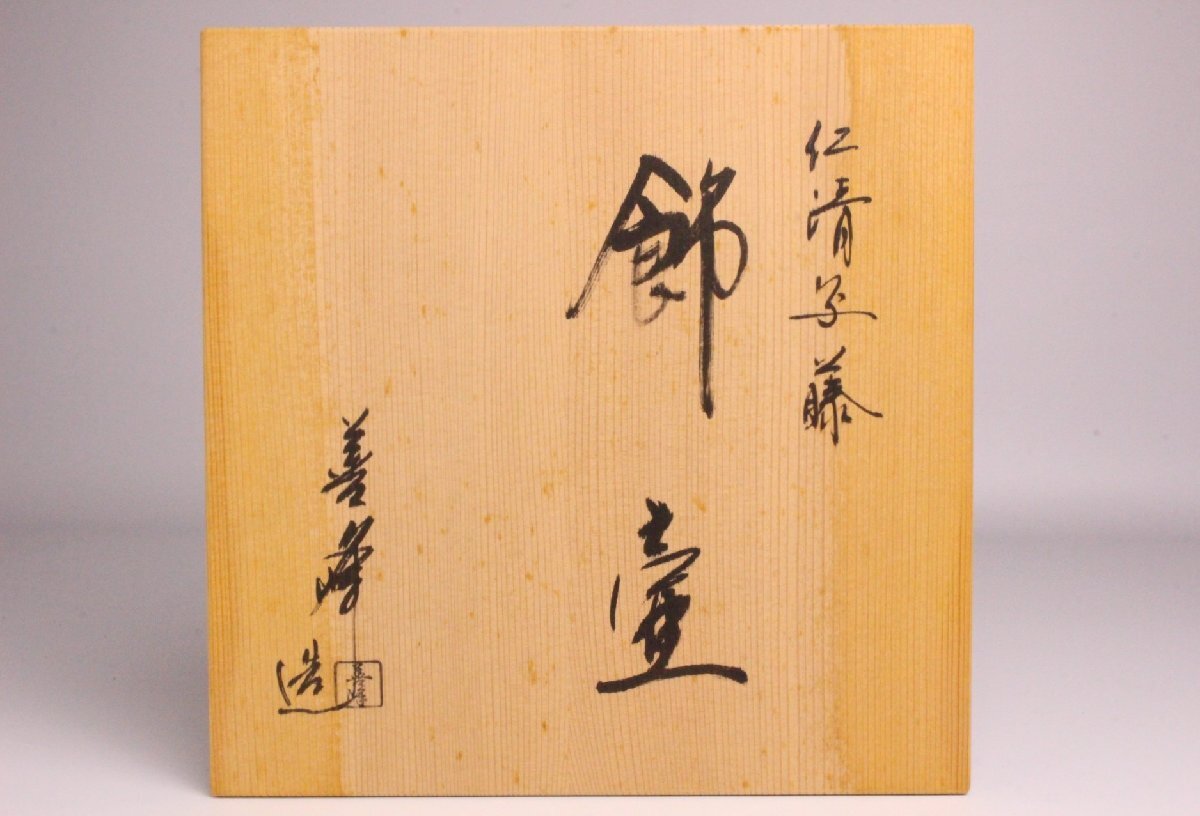 仁清写藤
飾壷
善峰造
善峰